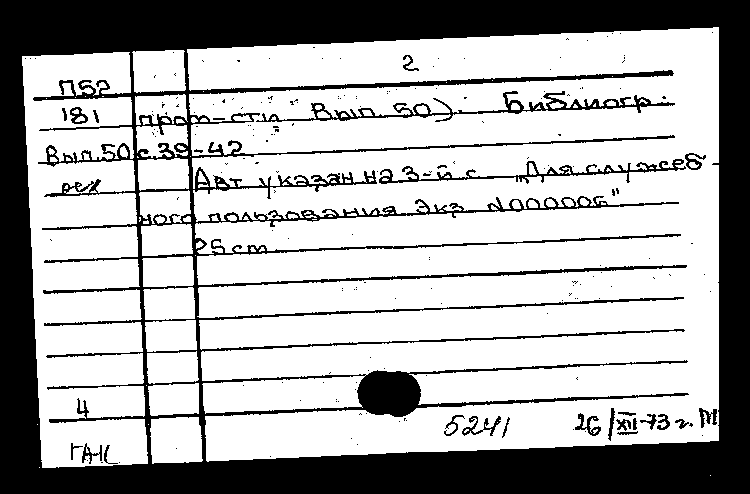 2
П52
181 пром-сти" Вып. 50). Библиогр.:
Вып.50 с. 39-42
Авт указан на 3-й с „Для служеб-
ного пользования Экз N000006"
25 cm
4
5241 26/XII-73 г.